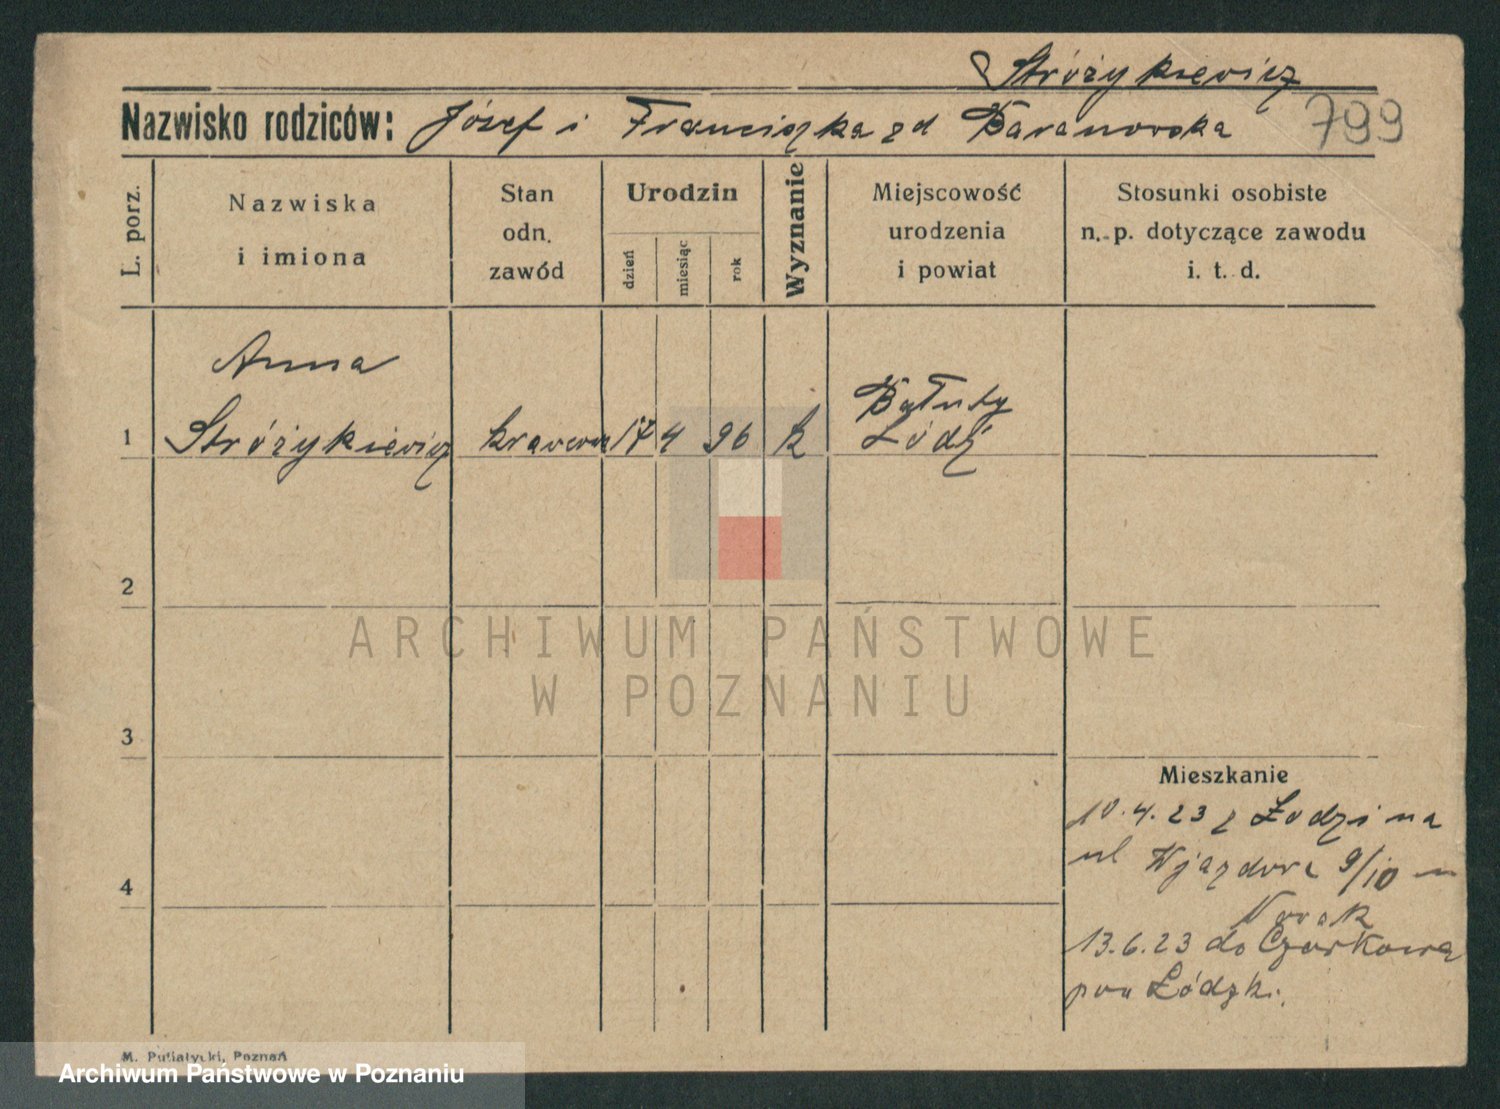 Stróżykiewicz
Nazwisko rodziców: Józef i Franciszka zd Baranowska 799
L. porz.
Nazwiska
i imiona
Stan
odn.
zawód
Urodzin
dzień
miesiąc
rok
Wyznanie
Miejscowość
urodzenia
i powiat
Stosunki osobiste
n. p. dotyczące zawodu
i. t. d.
Anna
Bałuty
1 Stróżykiewicz krawcowa 17 4 96 k Łódź
2
3
Mieszkanie
10.4.23 z Łodzi na
ul Wjazdowa 9/10 u
4
Nowak
13.6.23 do Czarkowa
pow Łódzki.
M. Putiatycki, Poznań
ARCHIWUM PAŃSTWOWE
W POZNANIU
Archiwum Państwowe w Poznaniu